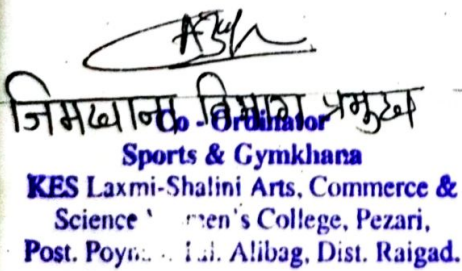 जिमखाना विभाग प्रमुख
Co - Ordinator
Sports & Gymkhana
KES Laxmi-Shalini Arts, Commerce &
Science men's College, Pezari,
Post. Alibag, Dist. Raigad.